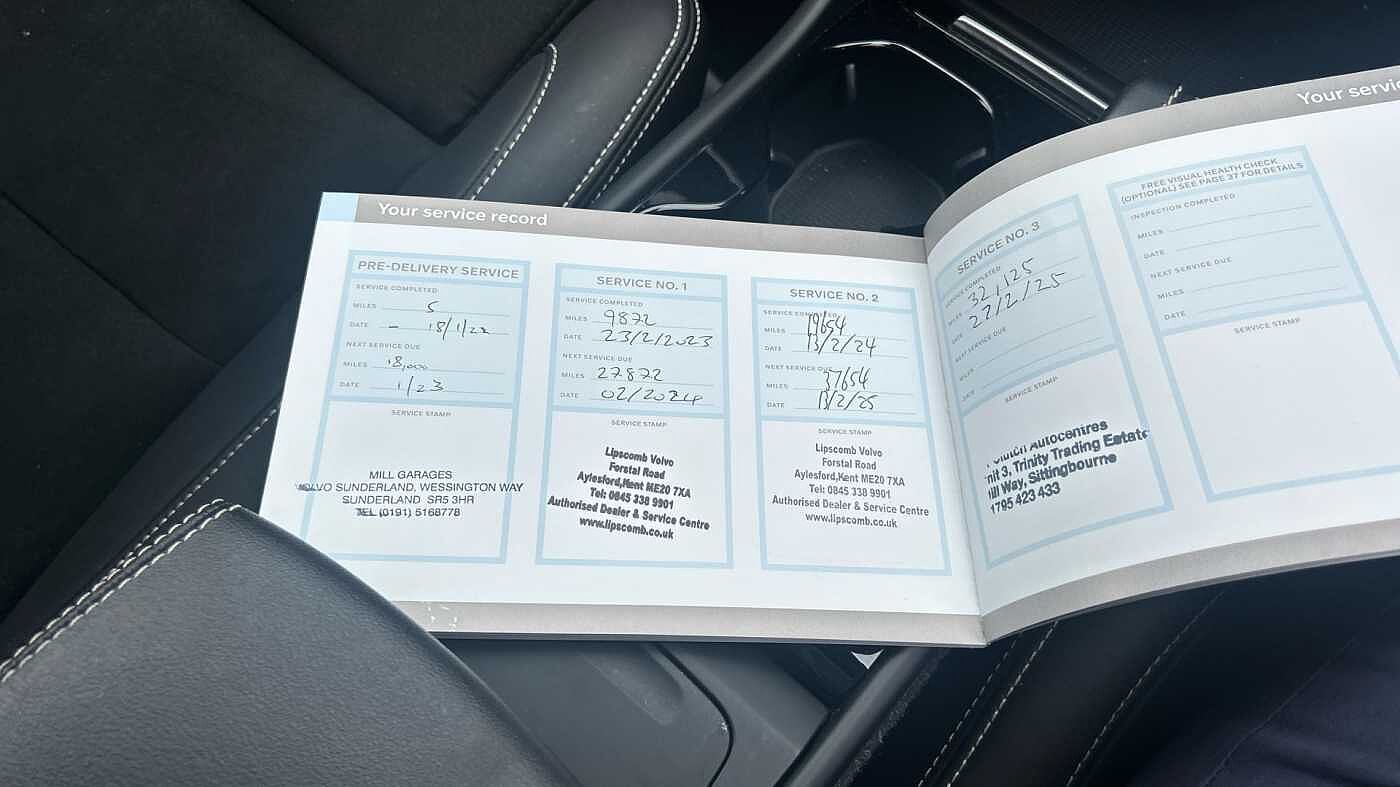 Your service record
PRE-DELIVERY SERVICE
SERVICE COMPLETED
MILES 5
DATE - 18/1/22
NEXT SERVICE DUE
MILES 18,000
DATE 1/23
SERVICE STAMP
MILL GARAGES
VOLVO SUNDERLAND, WESSINGTON WAY
SUNDERLAND SR5 3HR
TEL (0191) 5168778
SERVICE NO. 1
SERVICE COMPLETED
MILES 9872
DATE 23/2/2023
NEXT SERVICE DUE
MILES 27872
DATE 02/2024
SERVICE STAMP
Lipscomb Volvo
Forstal Road
Aylesford,Kent ME20 7XA
Tel: 0845 338 9901
Authorised Dealer & Service Centre
www.lipscomb.co.uk
SERVICE NO. 2
SERVICE COMPLETED
MILES 19654
DATE 13/2/24
NEXT SERVICE DUE
MILES 37654
DATE 13/2/25
SERVICE STAMP
Lipscomb Volvo
Forstal Road
Aylesford,Kent ME20 7XA
Tel: 0845 338 9901
Authorised Dealer & Service Centre
www.lipscomb.co.uk
Your servic
SERVICE NO. 3
SERVICE COMPLETED
MILES 32,125
DATE 27/2/25
NEXT SERVICE DUE
MILES
DATE
SERVICE STAMP
Autocentres
nit 3, Trinity Trading Estate
ill Way, Sittingbourne
1795 423 433
FREE VISUAL HEALTH CHECK
(OPTIONAL) SEE PAGE 37 FOR DETAILS
INSPECTION COMPLETED
MILES
DATE
NEXT SERVICE DUE
MILES
DATE
SERVICE STAMP